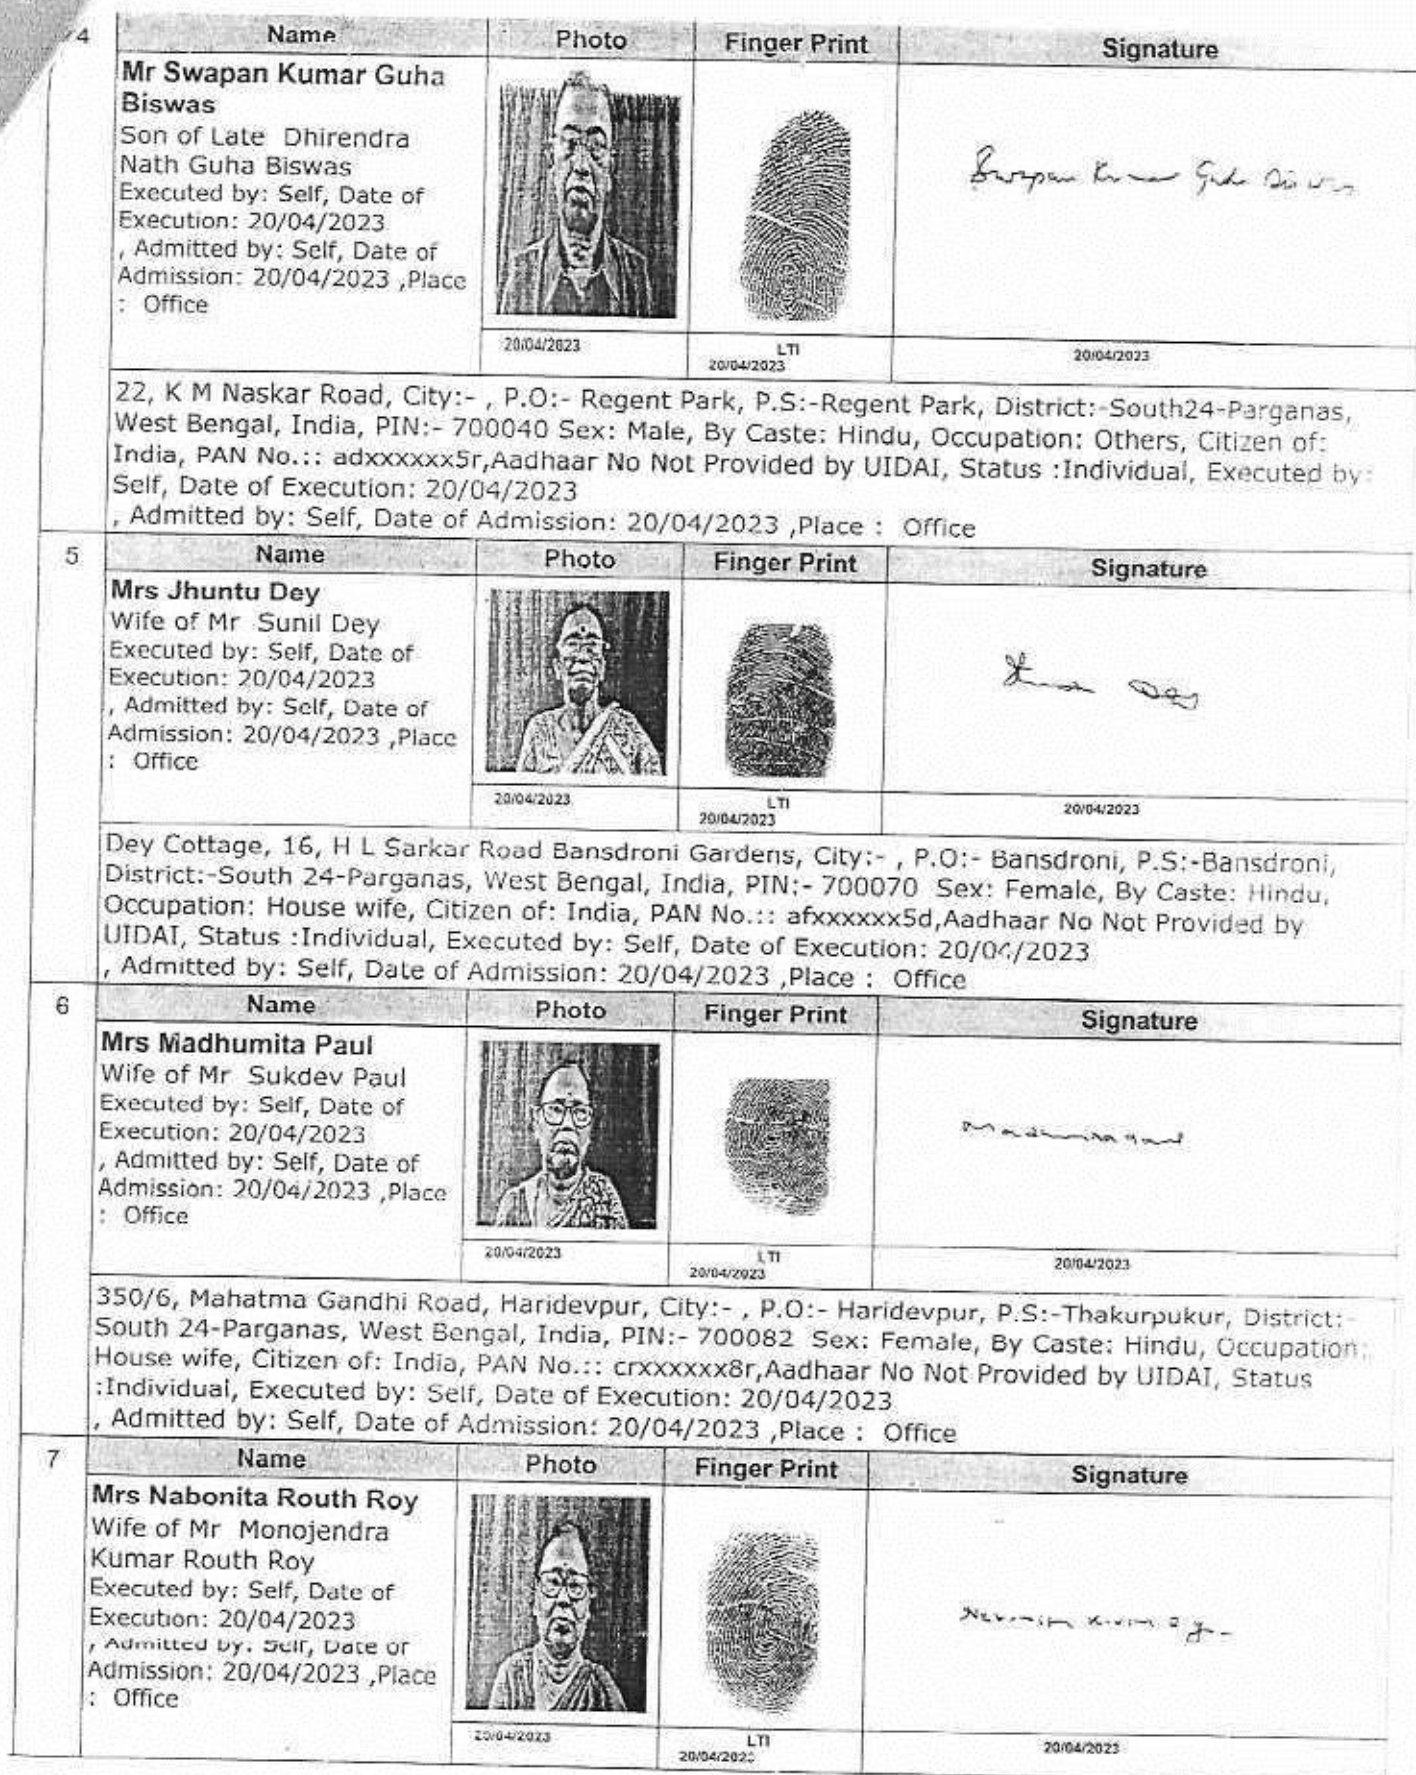 4
Name Photo Finger Print Signature
Mr Swapan Kumar Guha
Biswas
Son of Late Dhirendra
Nath Guha Biswas
Executed by: Self, Date of
Execution: 20/04/2023
, Admitted by: Self, Date of
Admission: 20/04/2023 ,Place
: Office
Swapan Kumar Guha Biswas
20/04/2023 LTI 20/04/2023
20/04/2023
22, K M Naskar Road, City:- , P.O:- Regent Park, P.S:-Regent Park, District:-South24-Parganas,
West Bengal, India, PIN:- 700040 Sex: Male, By Caste: Hindu, Occupation: Others, Citizen of:
India, PAN No.:: adxxxxxx5r,Aadhaar No Not Provided by UIDAI, Status :Individual, Executed by:
Self, Date of Execution: 20/04/2023
, Admitted by: Self, Date of Admission: 20/04/2023 ,Place : Office
5
Name Photo Finger Print Signature
Mrs Jhuntu Dey
Wife of Mr Sunil Dey
Executed by: Self, Date of
Execution: 20/04/2023
, Admitted by: Self, Date of
Admission: 20/04/2023 ,Place
: Office
Dey
20/04/2023 LTI 20/04/2023
20/04/2023
Dey Cottage, 16, H L Sarkar Road Bansdroni Gardens, City:- , P.O:- Bansdroni, P.S:-Bansdroni,
District:-South 24-Parganas, West Bengal, India, PIN:- 700070 Sex: Female, By Caste: Hindu,
Occupation: House wife, Citizen of: India, PAN No.:: afxxxxxx5d,Aadhaar No Not Provided by
UIDAI, Status :Individual, Executed by: Self, Date of Execution: 20/04/2023
, Admitted by: Self, Date of Admission: 20/04/2023 ,Place : Office
6
Name Photo Finger Print Signature
Mrs Madhumita Paul
Wife of Mr Sukdev Paul
Executed by: Self, Date of
Execution: 20/04/2023
, Admitted by: Self, Date of
Admission: 20/04/2023 ,Place
: Office
Madhumita Paul
20/04/2023 LTI 20/04/2023
20/04/2023
350/6, Mahatma Gandhi Road, Haridevpur, City:- , P.O:- Haridevpur, P.S:-Thakurpukur, District:-
South 24-Parganas, West Bengal, India, PIN:- 700082 Sex: Female, By Caste: Hindu, Occupation:
House wife, Citizen of: India, PAN No.:: crxxxxxx8r,Aadhaar No Not Provided by UIDAI, Status
:Individual, Executed by: Self, Date of Execution: 20/04/2023
, Admitted by: Self, Date of Admission: 20/04/2023 ,Place : Office
7
Name Photo Finger Print Signature
Mrs Nabonita Routh Roy
Wife of Mr Monojendra
Kumar Routh Roy
Executed by: Self, Date of
Execution: 20/04/2023
, Admitted by: Self, Date of
Admission: 20/04/2023 ,Place
: Office
20/04/2023 LTI 20/04/2023
20/04/2023